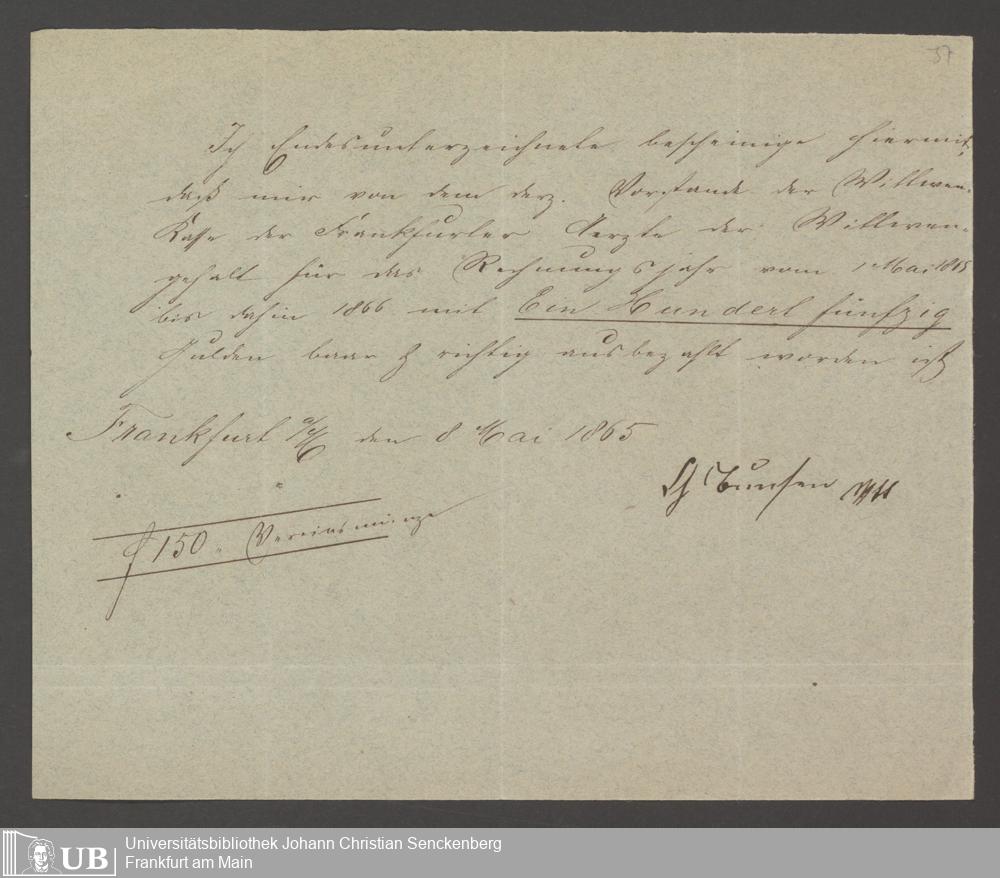 37
Ich Endesunterzeichnete bescheinige hiermit,
daß mir von dem derz. Vorstande der Wittwen-
Kasse der Frankfurter Aerzte der Wittwen-
gehalt für das Rechnungsjahr vom 1 Mai 1865
bis dahin 1866 mit Ein Hundert fünfzig
Gulden baar & richtig ausbezahlt worden ist
Frankfurt a/M den 8 Mai 1865
Bunsen
f 150 „ Vereinsmünze
UB
Universitätsbibliothek Johann Christian Senckenberg
Frankfurt am Main